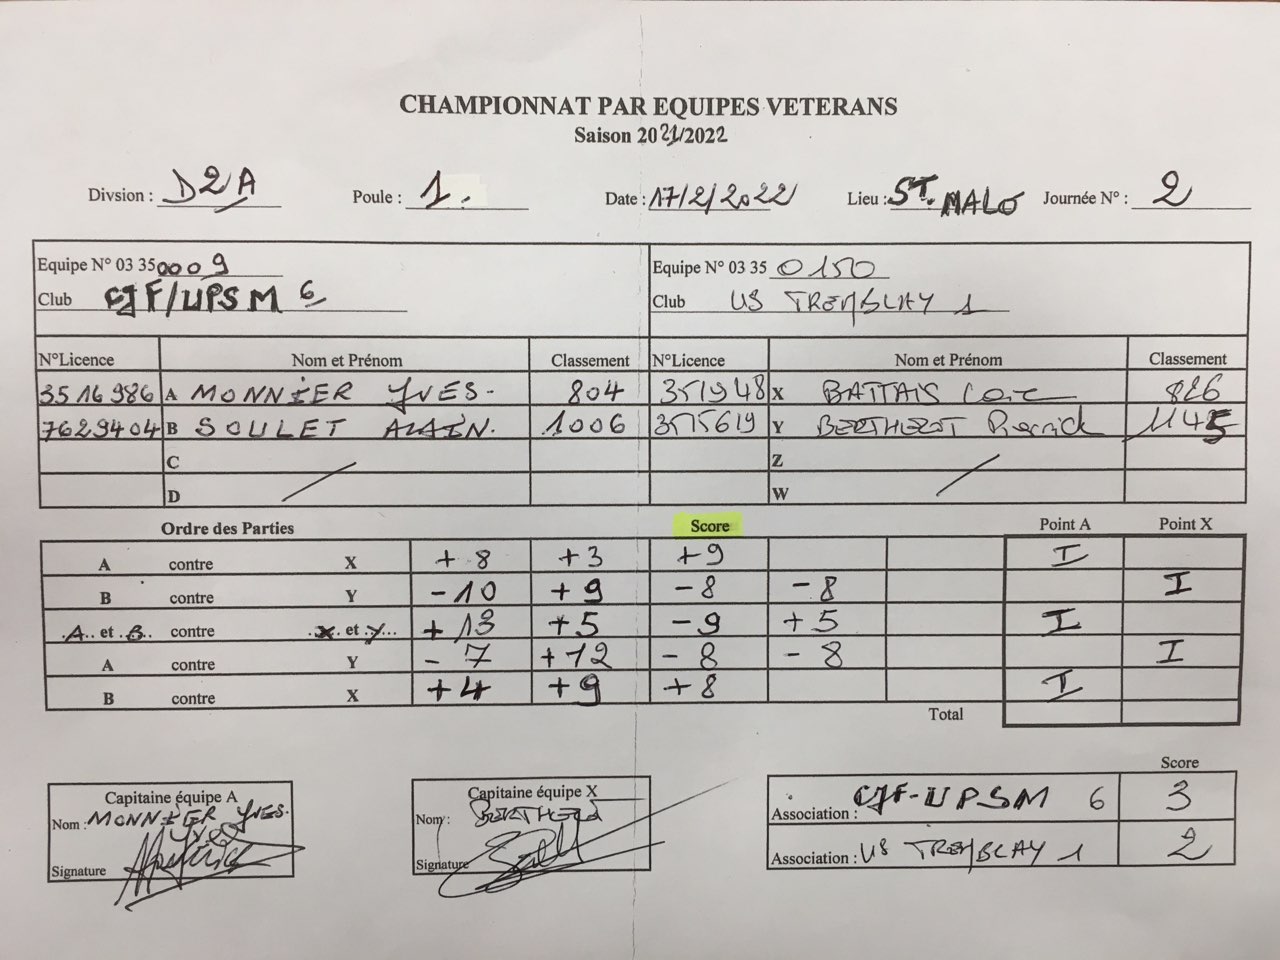 CHAMPIONNAT PAR EQUIPES VETERANS
Saison 2021/2022
Divsion : D2A Poule : 1. Date : 17/2/2022 Lieu : ST. MALO Journée N° : 2
Equipe N° 03 35 0009 Equipe N° 03 35 0150
Club CJF/UPSM 6 Club US TREMBLAY 1
N°Licence Nom et Prénom Classement N°Licence Nom et Prénom Classement
3516986 A MONNIER YVES. 804 351948 X BATTAIS Loïc 826
7629404 B SOULET ALAIN. 1006 3575619 Y BERTHELOT Pierrick 1145
C / Z /
D W
Ordre des Parties Score Point A Point X
A contre X + 8 +3 +9 I
B contre Y -10 +9 -8 -8 I
.A.. et .B.. contre .X. et .Y... + 13 +5 -9 +5 I
A contre Y - 7 +12 -8 -8 I
B contre X +4 +9 +8 I
Total
Score
Capitaine équipe A Capitaine équipe X
Nom : MONNIER YVES. Nom : Association : CJF-UPSM 6 3
Signature Signature Association : US TREMBLAY 1 2